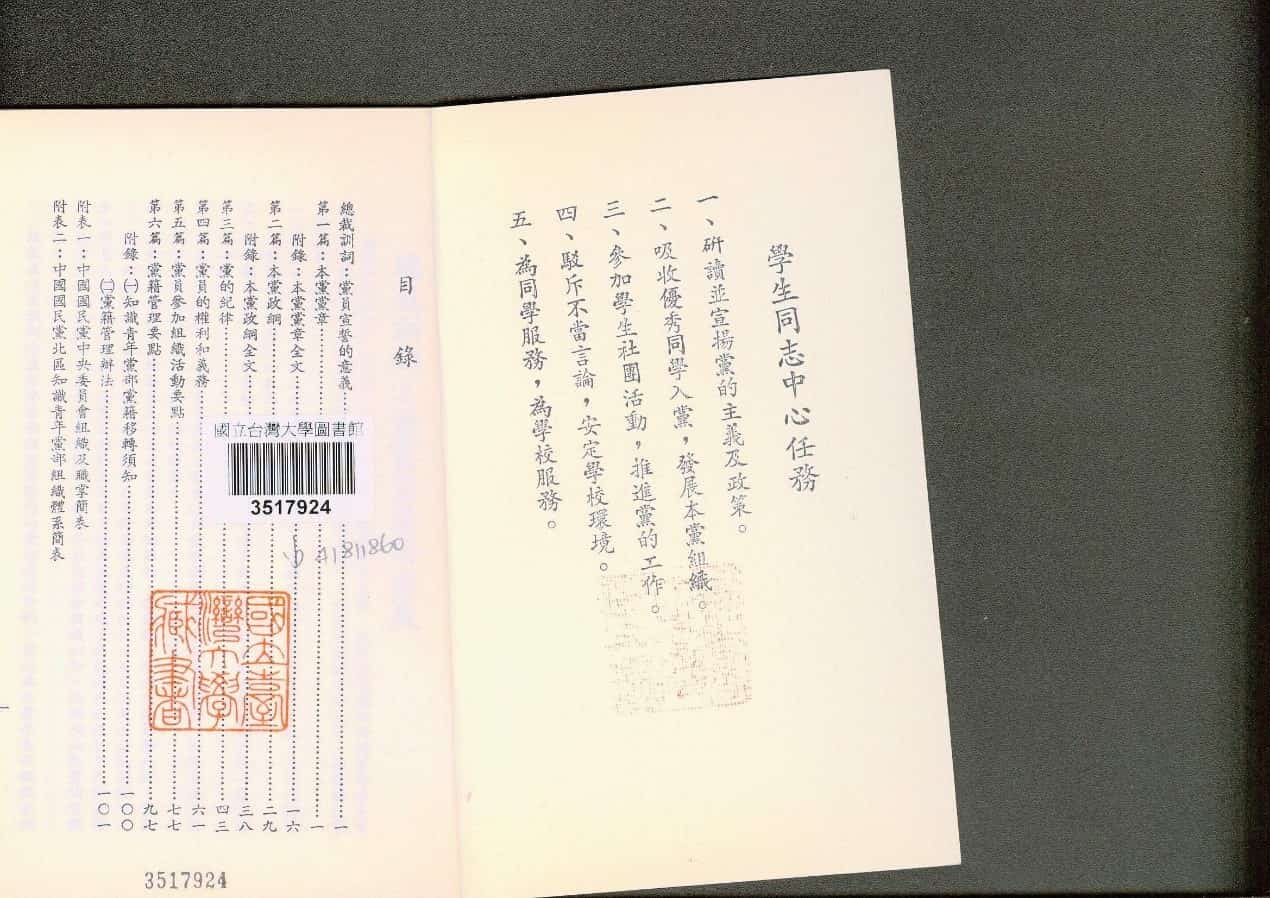 學生同志中心任務
一、研讀並宣揚黨的主義及政策。
二、吸收優秀同學入黨，發展本黨組織。
三、參加學生社團活動，推進黨的工作。
四、駁斥不當言論，安定學校環境。
五、為同學服務，為學校服務。
目錄
總裁訓詞：黨員宣誓的意義……一
第一篇：本黨黨章……一
附錄：本黨黨章全文……一六
第二篇：本黨政綱……二九
附錄：本黨政綱全文……三八
第三篇：黨的紀律……四三
第四篇：黨員的權利和義務……六一
第五篇：黨員參加組織活動要點……七七
第六篇：黨籍管理要點……九七
附錄：㈠知識青年黨部黨籍移轉須知……一○○
㈡黨籍管理辦法……一○一
附表一：中國國民黨中央委員會組織及職掌簡表
附表二：中國國民黨北區知識青年黨部組織體系簡表
國立台灣大學圖書館
3517924
A1811860
國立臺
灣大學
藏書
3517924